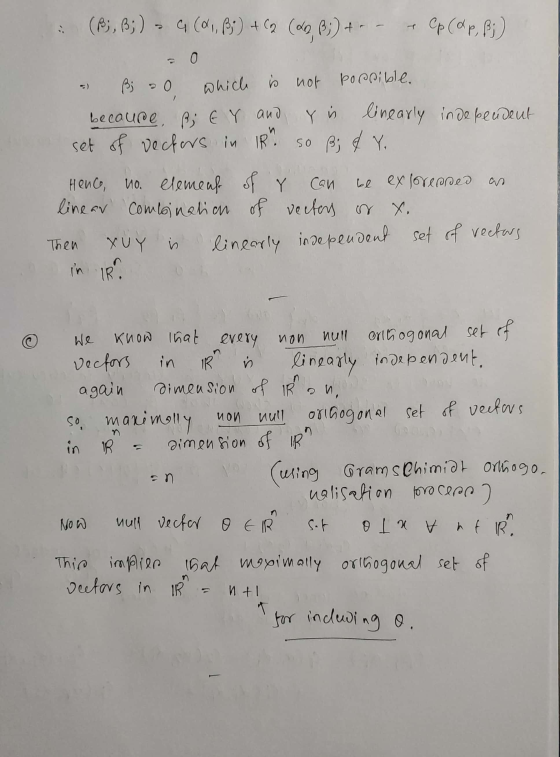 ∴ (βj, βj) = c1 (α1, βj) + c2 (α2, βj) + - - + cp (αp, βj)
= 0
⇒ βj = 0, which is not possible.
because, βj ∈ Y and Y is linearly independent
set of vectors in ℝⁿ. so βj ∉ Y.
Hence, no. element of Y can be expressed as
linear combination of vectors or X.
Then X∪Y is linearly independent set of vectors
in ℝⁿ.
—
ⓒ We know that every non null orthogonal set of
vectors in ℝⁿ is linearly independent.
again dimension of ℝⁿ = n,
so, maximally non null orthogonal set of vectors
in ℝⁿ = dimension of ℝⁿ
= n (using Gram Schimidt orthogo-
nalisation process)
Now null vector θ ∈ ℝⁿ s.t θ ⊥ x ∀ x ∈ ℝⁿ.
This implies that maximally orthogonal set of
vectors in ℝⁿ = n+1
↑ for including θ.
—